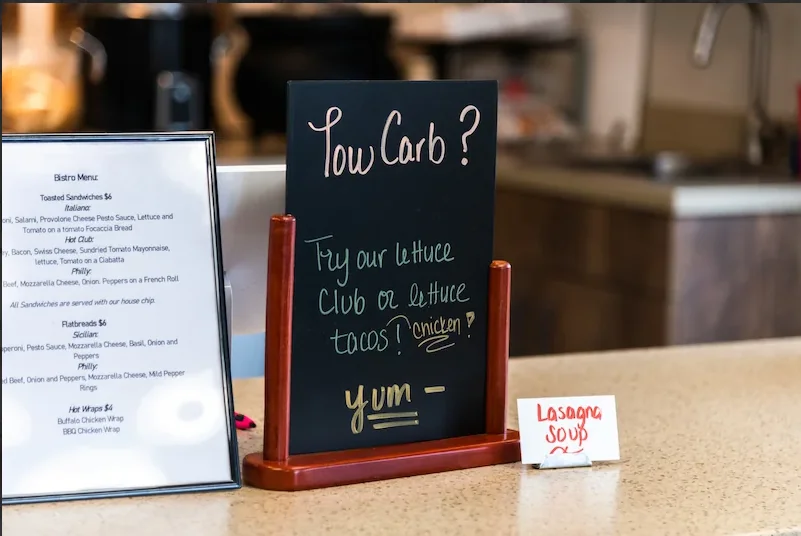 Bistro Menu:
Toasted Sandwiches $6
Italiano:
Salami, Provolone Cheese Pesto Sauce, Lettuce and
Tomato on a tomato Focaccia Bread
Hot Club:
Bacon, Swiss Cheese, Sundried Tomato Mayonnaise,
lettuce, Tomato on a Ciabatta
Philly:
Beef, Mozzarella Cheese, Onion. Peppers on a French Roll
All Sandwiches are served with our house chip.
Flatbreads $6
Sicilian:
Pesto Sauce, Mozzarella Cheese, Basil, Onion and
Peppers
Philly:
Beef, Onion and Peppers, Mozzarella Cheese, Mild Pepper
Rings
Hot Wraps $4
Buffalo Chicken Wrap
BBQ Chicken Wrap
Low Carb?
Try our lettuce
Club or lettuce
tacos! chicken?
yum -
Lasagna
Soup